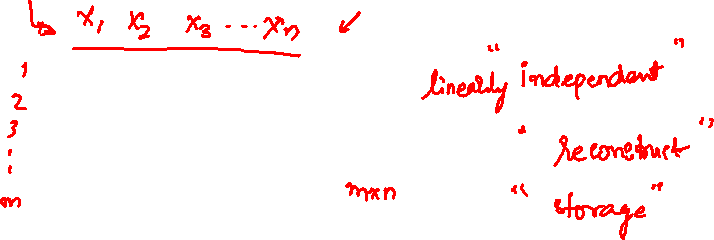 x₁ x₂ x₃ ... xₙ
1
2
3
:
m
m×n
linearly "independent"
"reconstruct"
"storage"